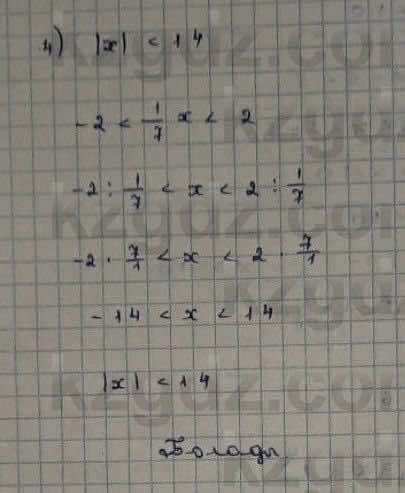 4) |x| < 14
-2 < 1/7 x < 2
-2 : 1/7 < x < 2 : 1/7
-2 · 7/1 < x < 2 · 7/1
-14 < x < 14
|x| < 14
Болады